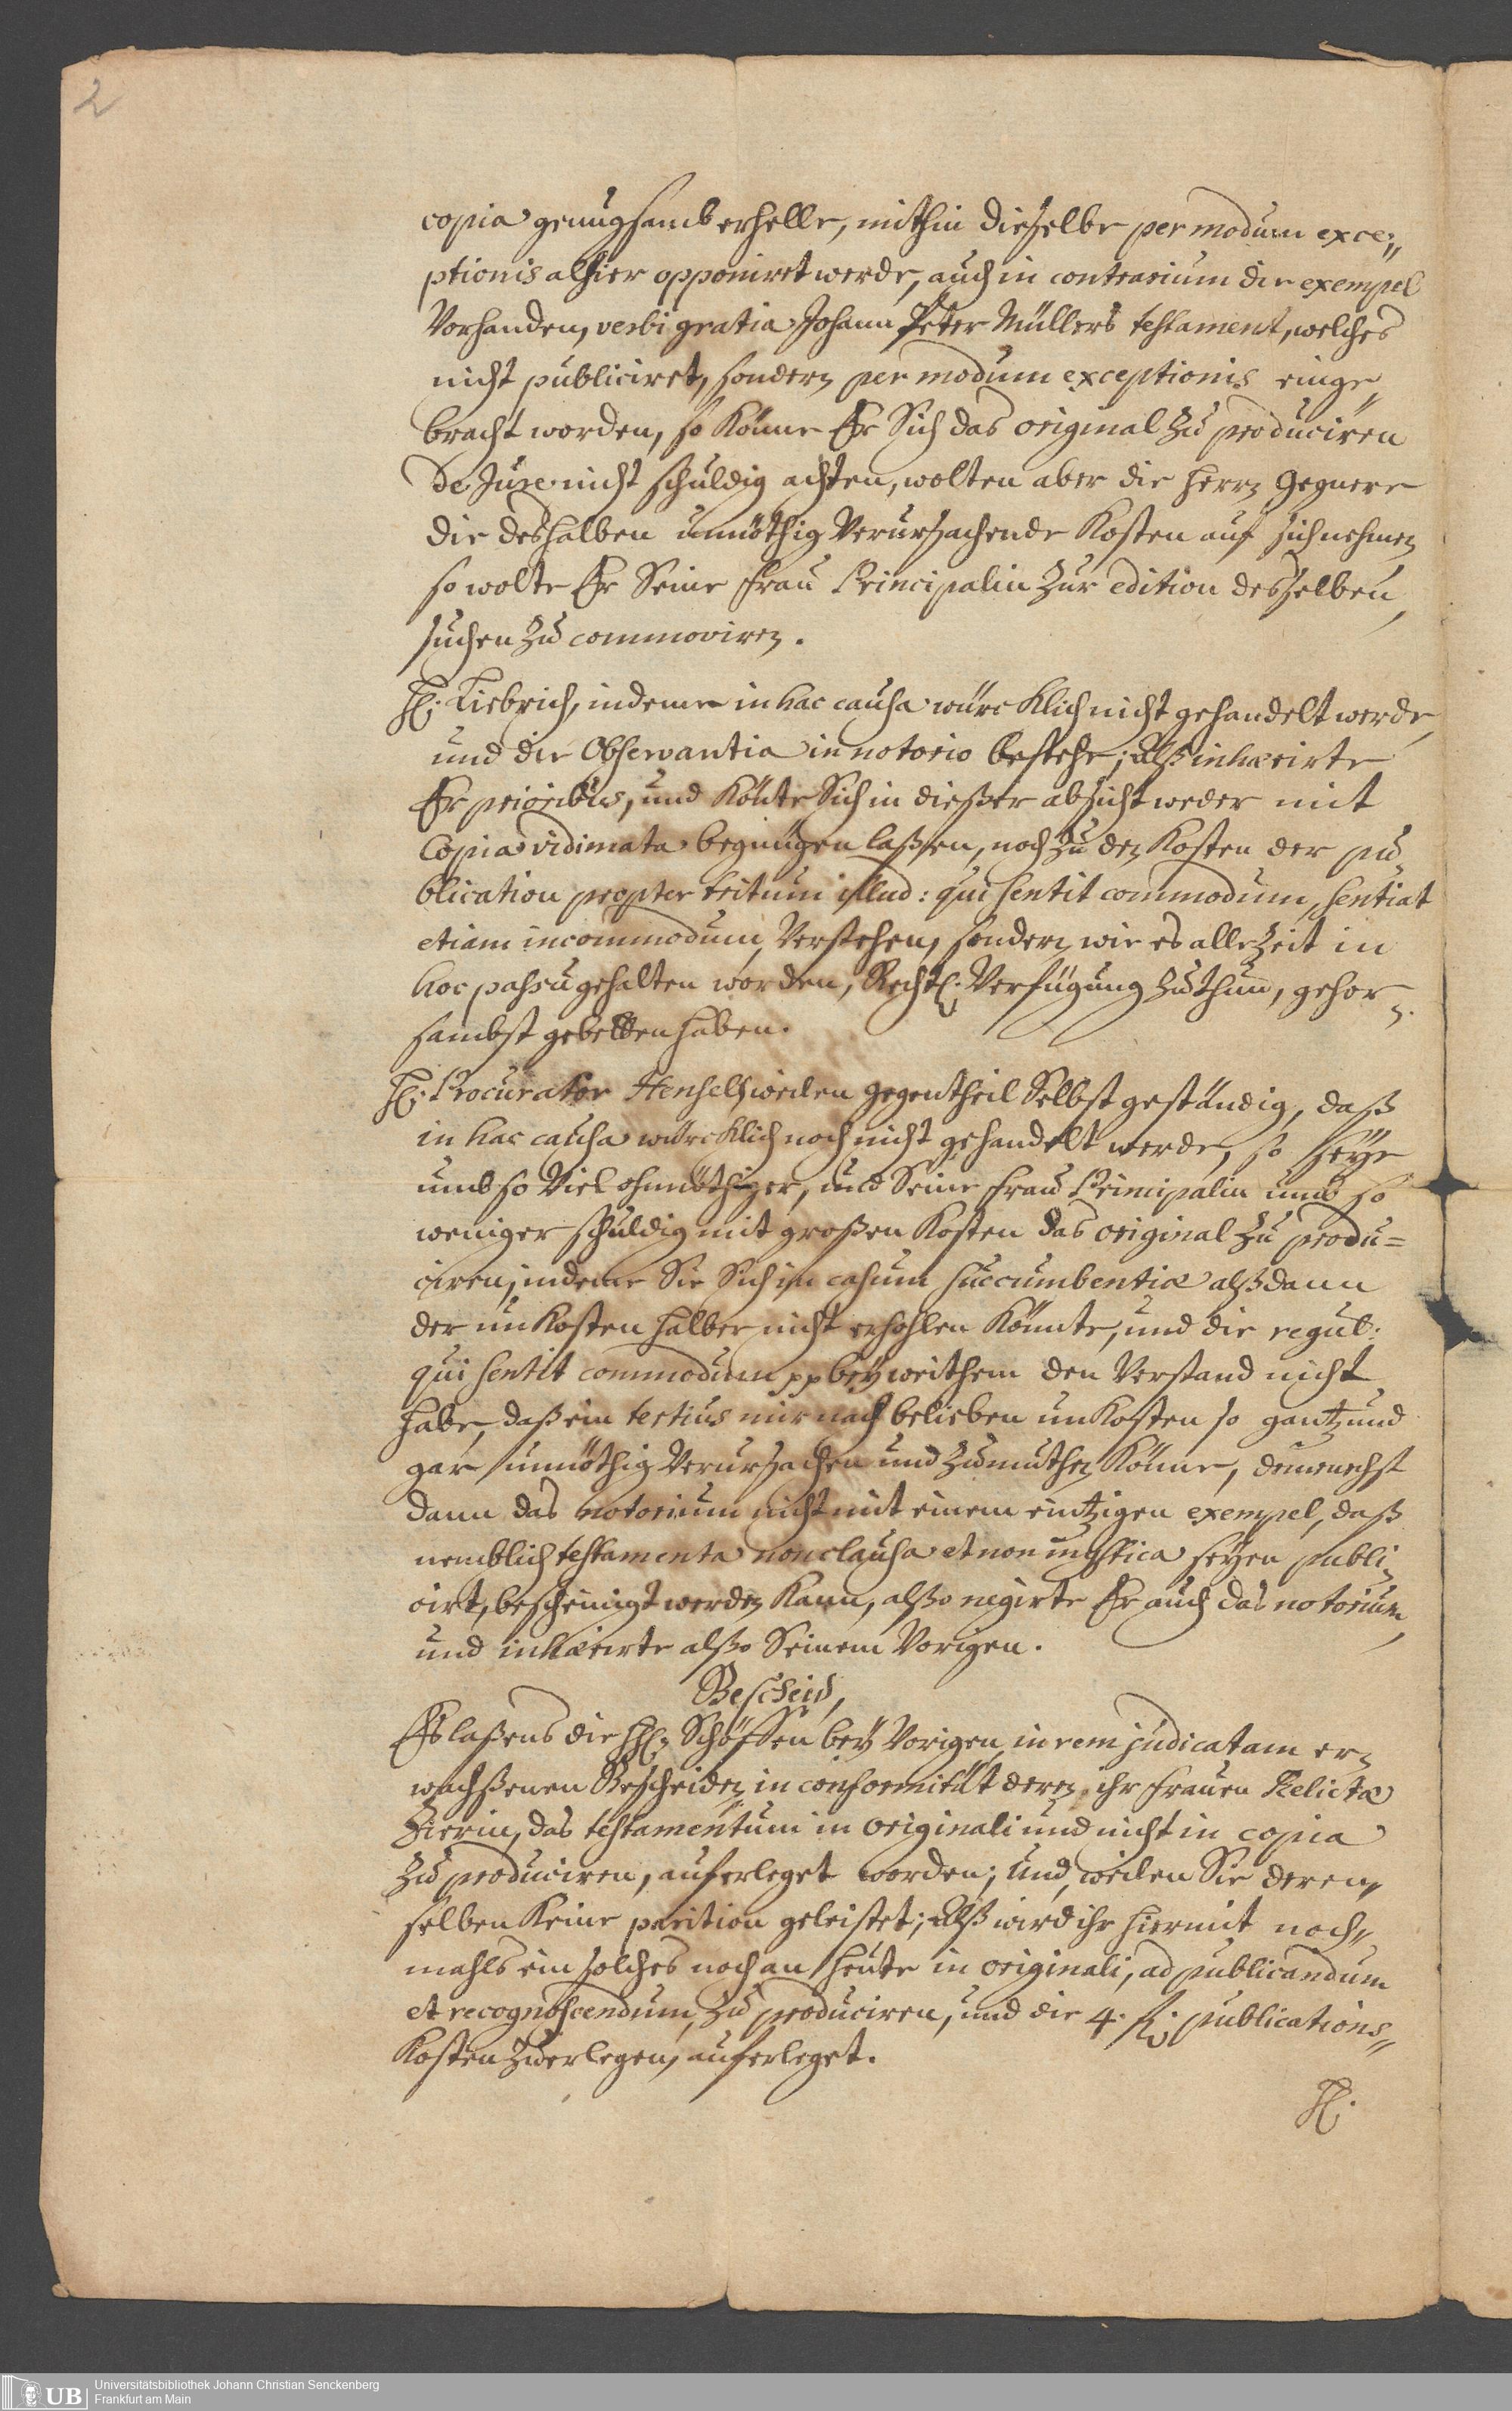 2
copia genugsamb erhelle, mithin dieselbe per modum exce„
ptionis alhier opponiret werde, auch in contrarium die exempel
Vorhanden, verbi gratia Johann Peter Müllers testament, welches
nicht publiciret, sondern per modum exceptionis einge„
bracht worden, so könne Er Sich das original zu produciren
de Jure nicht schuldig achten, wolten aber die Herrn Gegnere
die deshalben unnöthig Verursachende Kosten auf sich nehmen
so wolte Er Seine Frau Principalin zur edition desselben
suchen zu commoviren.
H: Liebrich, indeme in hac causa würcklich nicht gehandelt werde,
und die Observantia in notorio bestehe; Alß inhærirte
Er prioribus, und könte Sich in dießer absicht weder mit
Copia vidimata begnügen laßen, noch zu den Kosten der pu„
blication propter tritum illud: qui sentit commodum, sentiat
etiam incommodum, Verstehen, sondern wie es allezeit in
hoc passu gehalten worden, Rechtl: Verfügung zu thun, gehor„
sambst gebetten haben.
H: Procurator Hensel, weilen gegentheil Selbst geständig, daß
in hac causa würcklich noch nicht gehandelt werde, so seye
umb so Viel ohnnöthiger, und Seine Frau Principalin umb so
weniger schuldig mit großen Kosten das original zu produ=
ciren, indeme Sie Sich in casum succumbentiæ alßdann
der unkosten halber nicht erhohlen könnte, und die regul:
qui sentit commodum pp bey weithem den Verstand nicht
habe, daß ein tertius mir nach belieben unkosten so gantz und
gar unnöthig Verursachen und zumuthen könne, demenechst
dann das notorium nicht mit einem eintzigen exempel, daß
nemblich testamenta non clausa et non mystica seyen publi„
cirt, bescheinigt werden kann, alßo negirte Er auch das notorium,
und inhærirte alßo Seinem Vorigen.
Bescheid,
Es laßens die HH: Schöffen bey Vorigen in rem judicatam er„
wachßenen Bescheiden, in conformität deren, ihr Frauen Relictæ
Zierin, das testamentum in originali und nicht in copia
zu produciren, auferleget worden; Und, weilen Sie deren„
selben keine parition geleistet; Alß wird ihr hiermit noch„
mahls ein solches noch an heute in originali, ad publicandum
et recognoscendum, zu produciren, und die 4. fl: publications„
Kosten zu erlegen, auferleget.
H:
UB Universitätsbibliothek Johann Christian Senckenberg
Frankfurt am Main